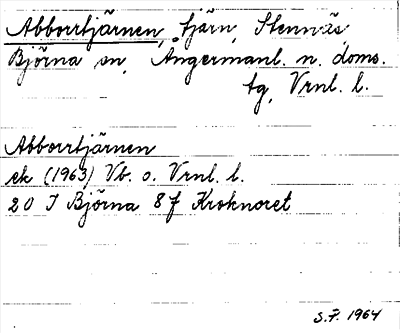 Abborrtjärnen, tjärn, Stennäs
Björna sn, Ångermanl. n. doms.
tg, Vrnl. l.
Abborrtjärnen
ek (1963) Vb. o. Vrnl. l.
20 I Björna 8 f Kroknoret
S.F. 1964